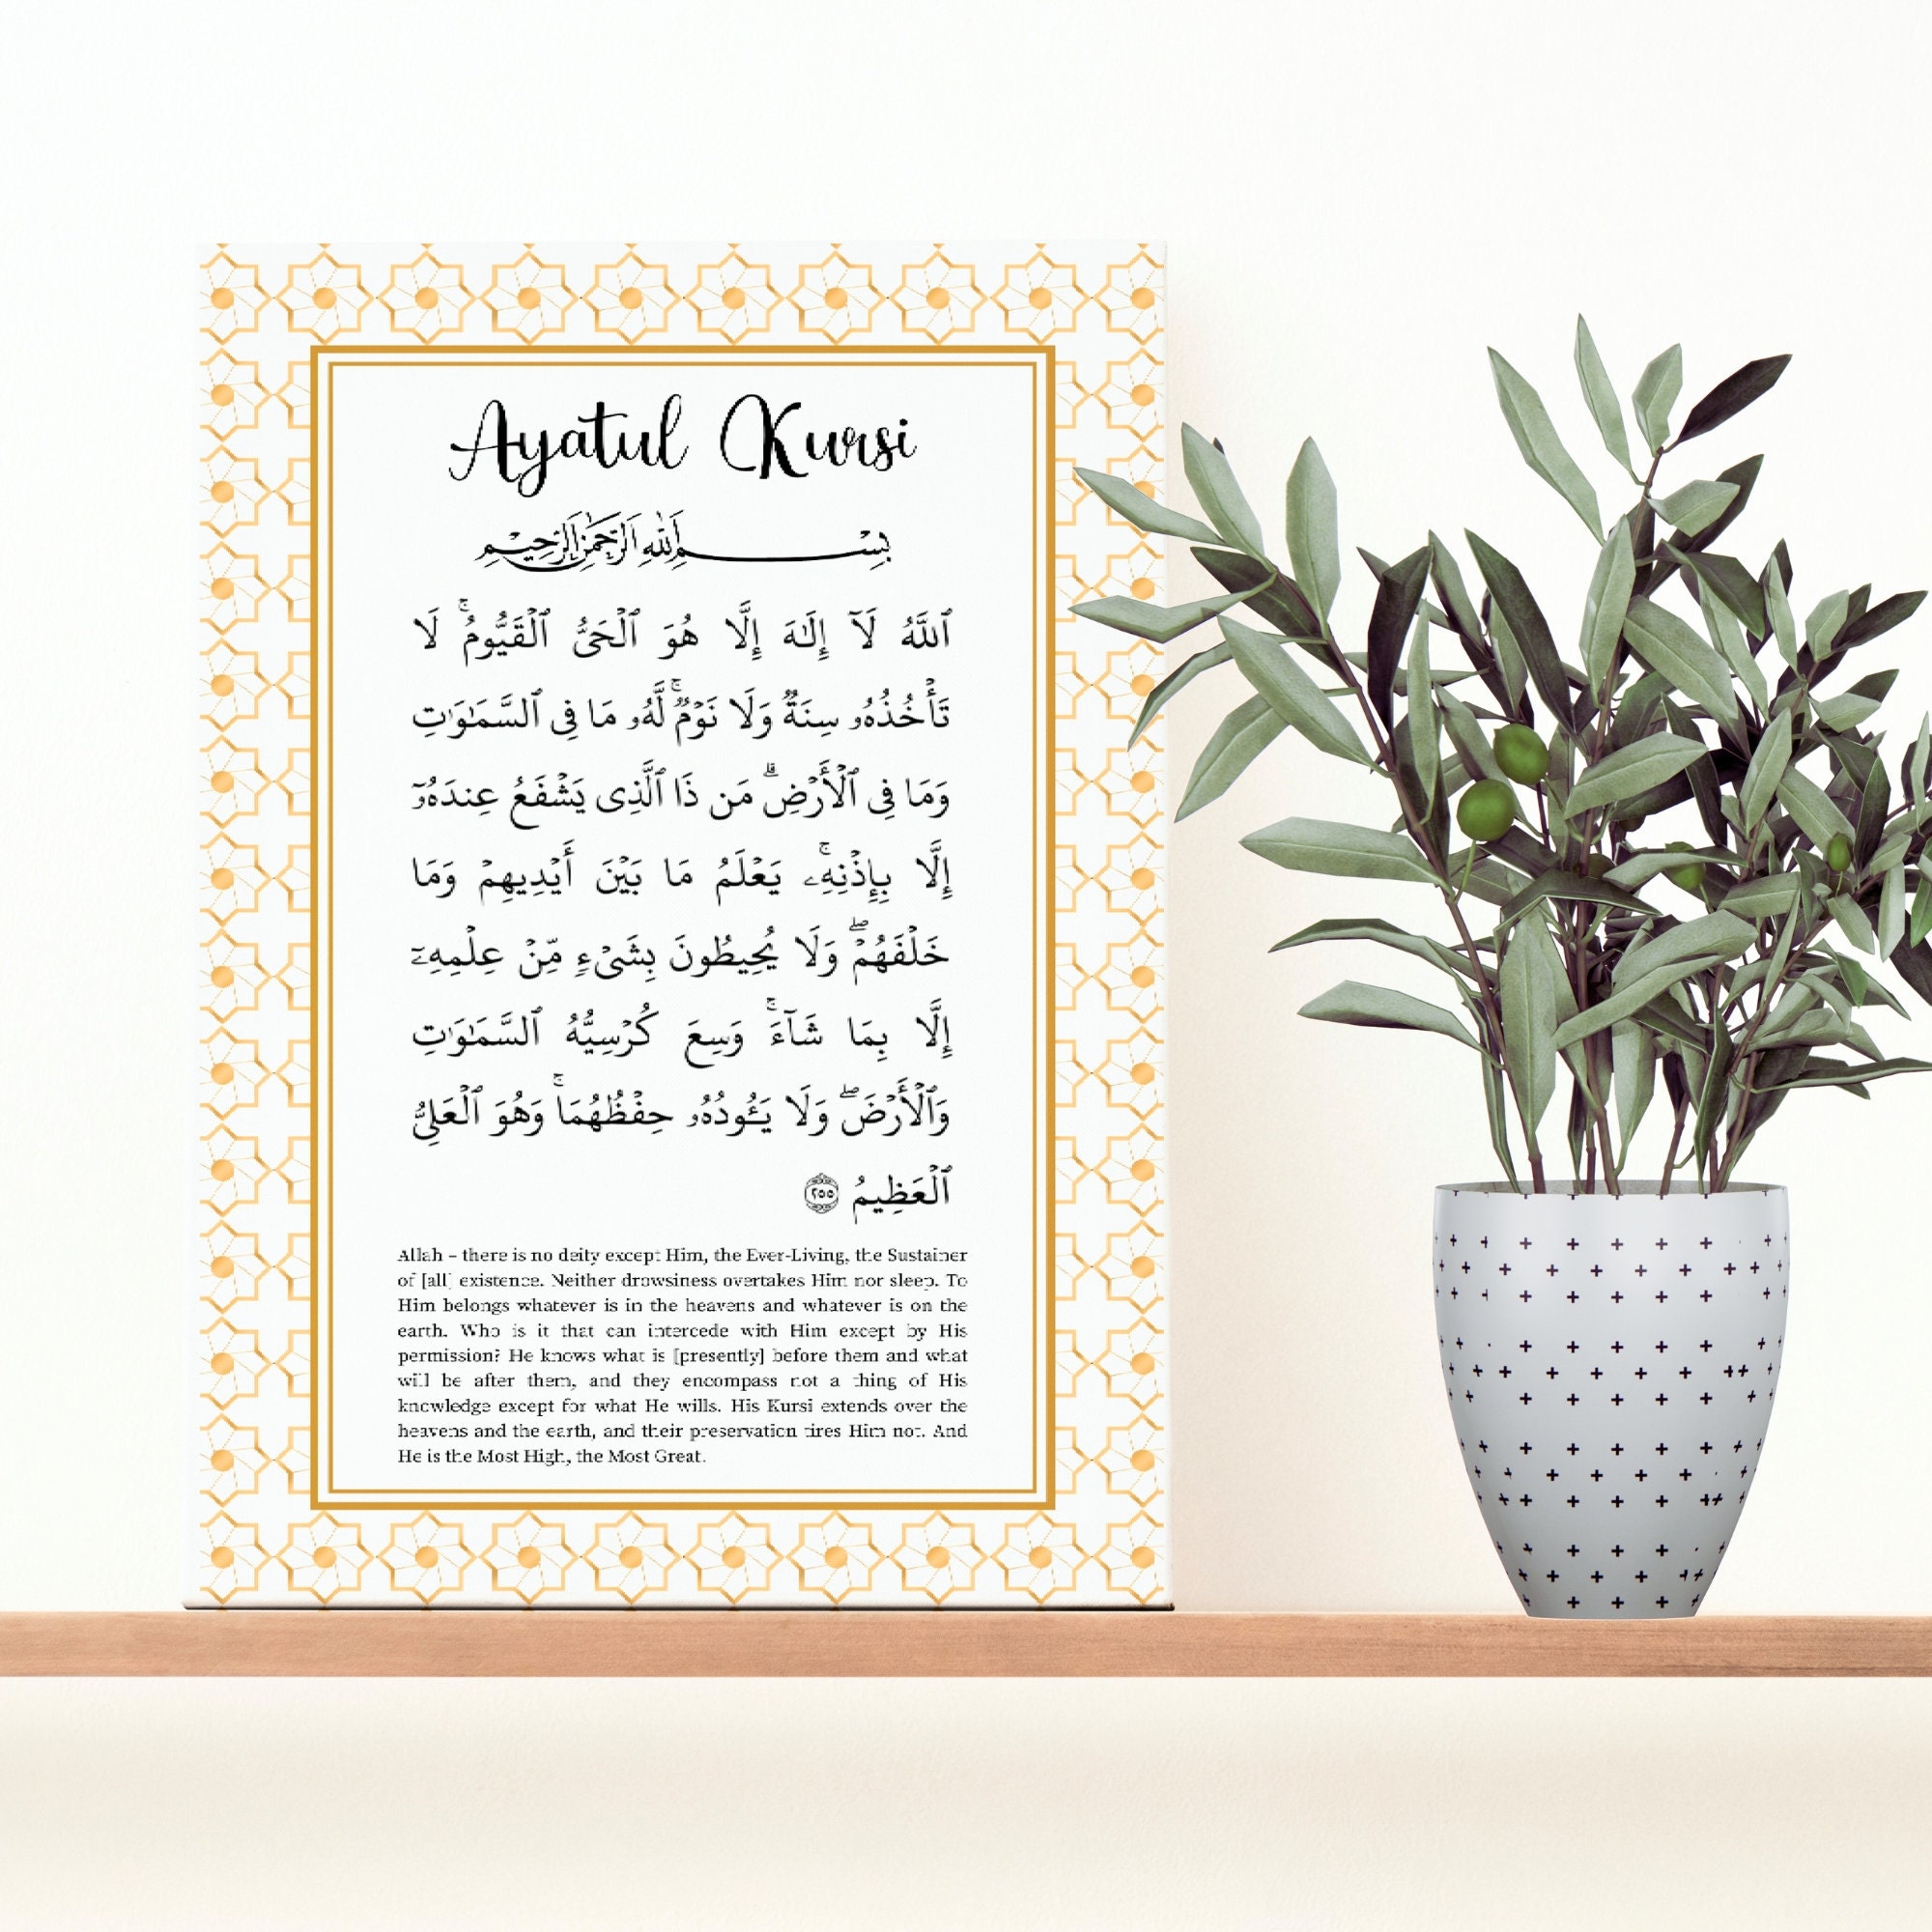 Ayatul Kursi
بِسْمِ ٱللَّهِ ٱلرَّحْمَٰنِ ٱلرَّحِيمِ
ٱللَّهُ لَآ إِلَٰهَ إِلَّا هُوَ ٱلْحَىُّ ٱلْقَيُّومُ ۚ لَا
تَأْخُذُهُۥ سِنَةٌ وَلَا نَوْمٌ ۚ لَّهُۥ مَا فِى ٱلسَّمَٰوَٰتِ
وَمَا فِى ٱلْأَرْضِ ۗ مَن ذَا ٱلَّذِى يَشْفَعُ عِندَهُۥٓ
إِلَّا بِإِذْنِهِۦ ۚ يَعْلَمُ مَا بَيْنَ أَيْدِيهِمْ وَمَا
خَلْفَهُمْ ۖ وَلَا يُحِيطُونَ بِشَىْءٍ مِّنْ عِلْمِهِۦٓ
إِلَّا بِمَا شَآءَ ۚ وَسِعَ كُرْسِيُّهُ ٱلسَّمَٰوَٰتِ
وَٱلْأَرْضَ ۖ وَلَا يَـُٔودُهُۥ حِفْظُهُمَا ۚ وَهُوَ ٱلْعَلِىُّ
ٱلْعَظِيمُ ٢٥٥
Allah – there is no deity except Him, the Ever-Living, the Sustainer
of [all] existence. Neither drowsiness overtakes Him nor sleep. To
Him belongs whatever is in the heavens and whatever is on the
earth. Who is it that can intercede with Him except by His
permission? He knows what is [presently] before them and what
will be after them, and they encompass not a thing of His
knowledge except for what He wills. His Kursi extends over the
heavens and the earth, and their preservation tires Him not. And
He is the Most High, the Most Great.